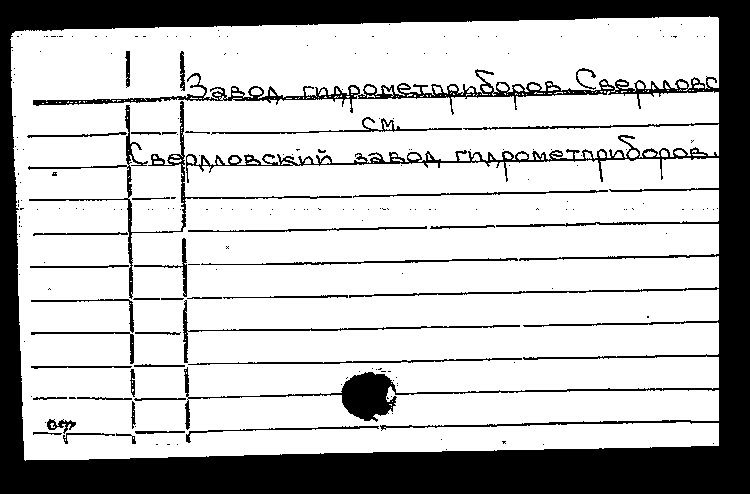 Завод гидрометприборов. Свердловс
см.
Свердловский завод гидрометприборов.